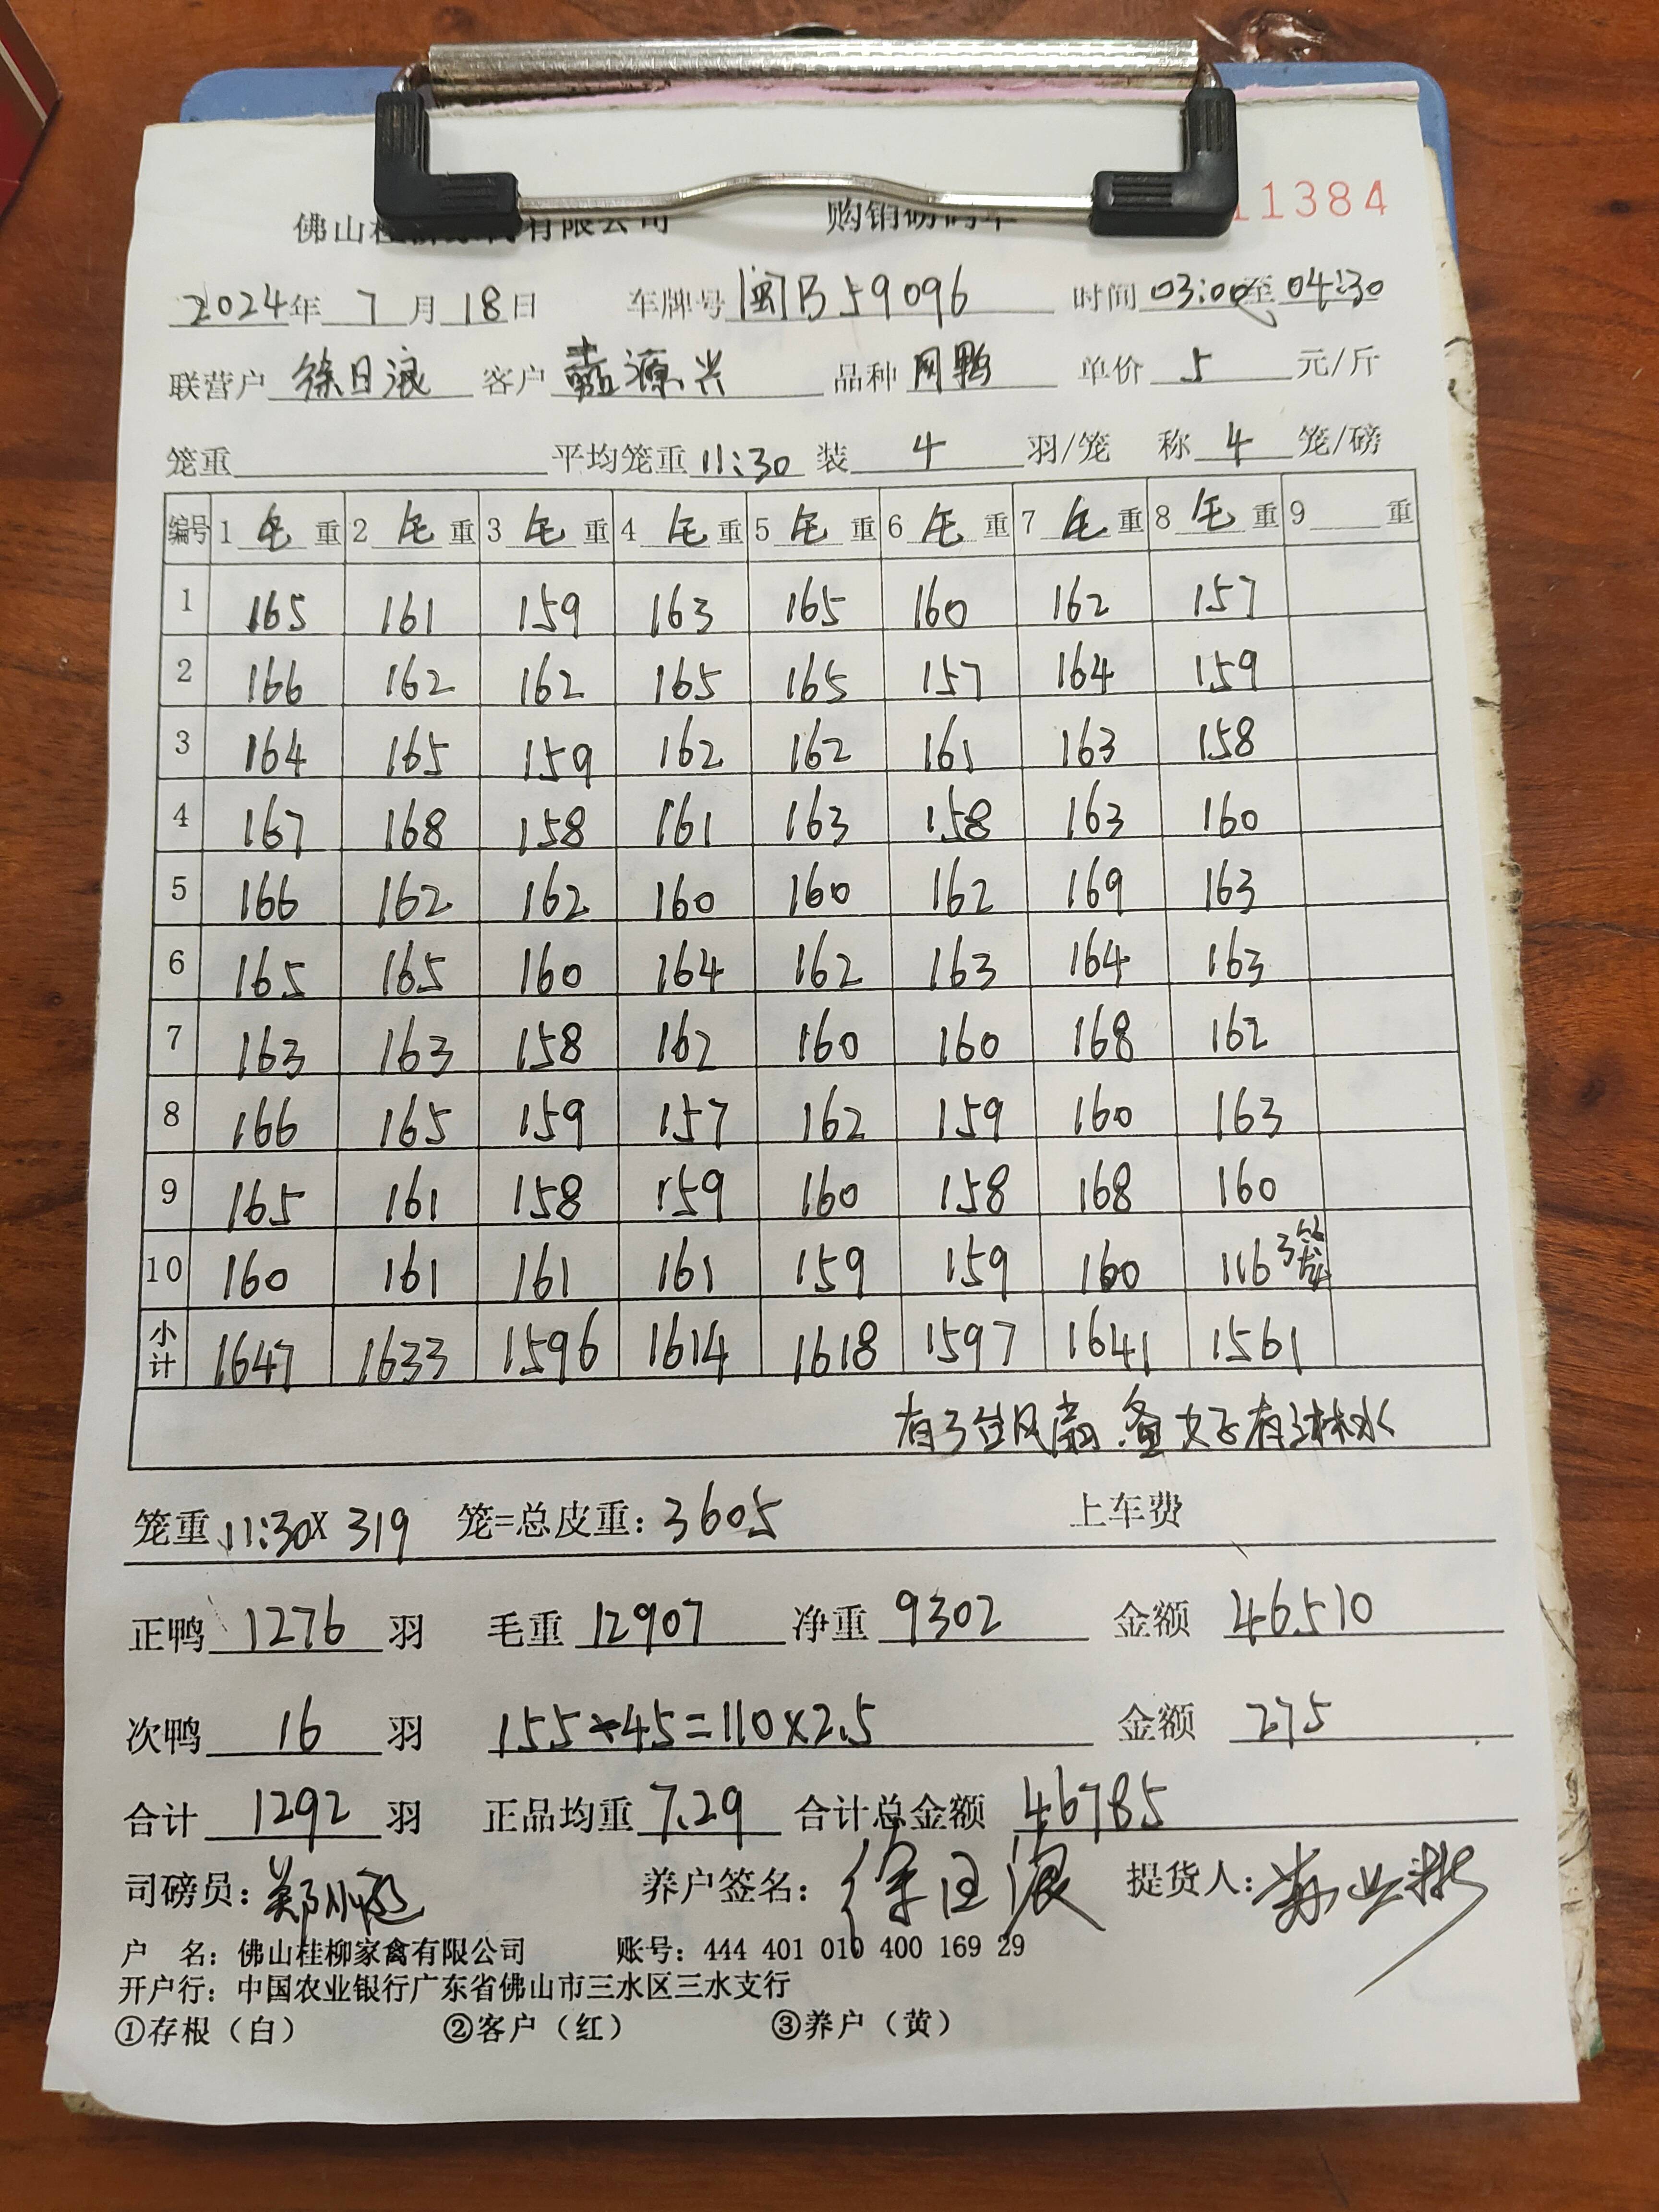 11384
佛山桂 有限公司 购销磅码单
2024年 7 月 18 日 车牌号 闽B59096 时间 03:00 至 04:30
联营户 徐日浪 客户 嘉源兴 品种 网鸭 单价 5 元/斤
笼重 平均笼重 11:30 装 4 羽/笼 称 4 笼/磅
编号 1 毛 重 2 毛 重 3 毛 重 4 毛 重 5 毛 重 6 毛 重 7 毛 重 8 毛 重 9 重
1 165 161 159 163 165 160 162 157
2 166 162 162 165 165 157 164 159
3 164 165 159 162 162 161 163 158
4 167 168 158 161 163 158 163 160
5 166 162 162 160 160 162 169 163
6 165 165 160 164 162 163 164 163
7 163 163 158 162 160 160 168 162
8 166 165 159 157 162 159 160 163
9 165 161 158 159 160 158 168 160
10 160 161 161 161 159 159 160 116 3笼
小计 1647 1633 1596 1614 1618 1597 1641 1561
有3台风扇 有淋水
笼重 11:30 X 319 笼=总皮重: 3605 上车费
正鸭 1276 羽 毛重 12907 净重 9302 金额 46510
次鸭 16 羽 155-45=110×2.5 金额 275
合计 1292 羽 正品均重 7.29 合计总金额 46785
司磅员: 郑 养户签名: 徐日浪 提货人:
户 名: 佛山桂柳家禽有限公司 账号: 444 401 010 400 169 29
开户行: 中国农业银行广东省佛山市三水区三水支行
①存根（白） ②客户（红） ③养户（黄）